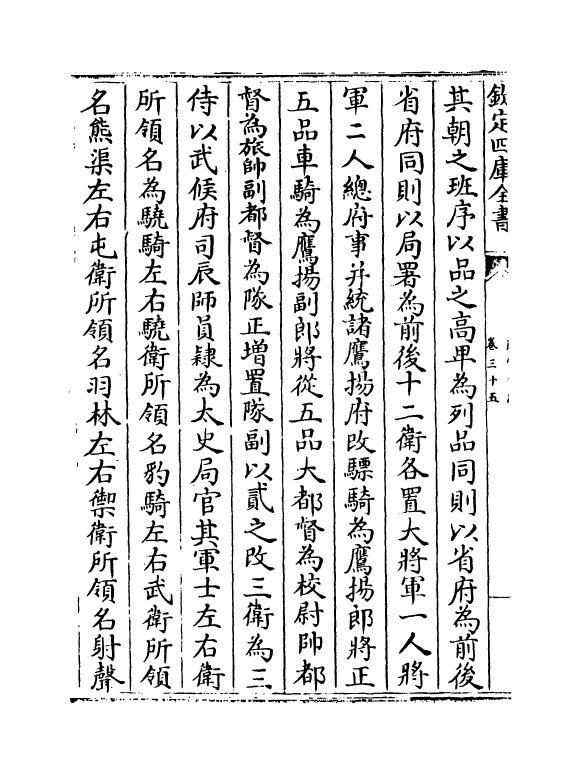 欽定四庫全書
卷三十五
其朝之班序以品之高卑為列品同則以省府為前後
省府同則以局署為前後十二衛各置大將軍一人將
軍二人總府事并統諸鷹揚府改驃騎為鷹揚郎將正
五品車騎為鷹揚副郎將從五品大都督為校尉帥都
督為旅帥副都督為隊正增置隊副以貳之改三衛為三
侍以武候府司辰師員隸為太史局官其軍士左右衛
所領名為驍騎左右驍衛所領名豹騎左右武衛所領
名熊渠左右屯衛所領名羽林左右禦衛所領名射聲